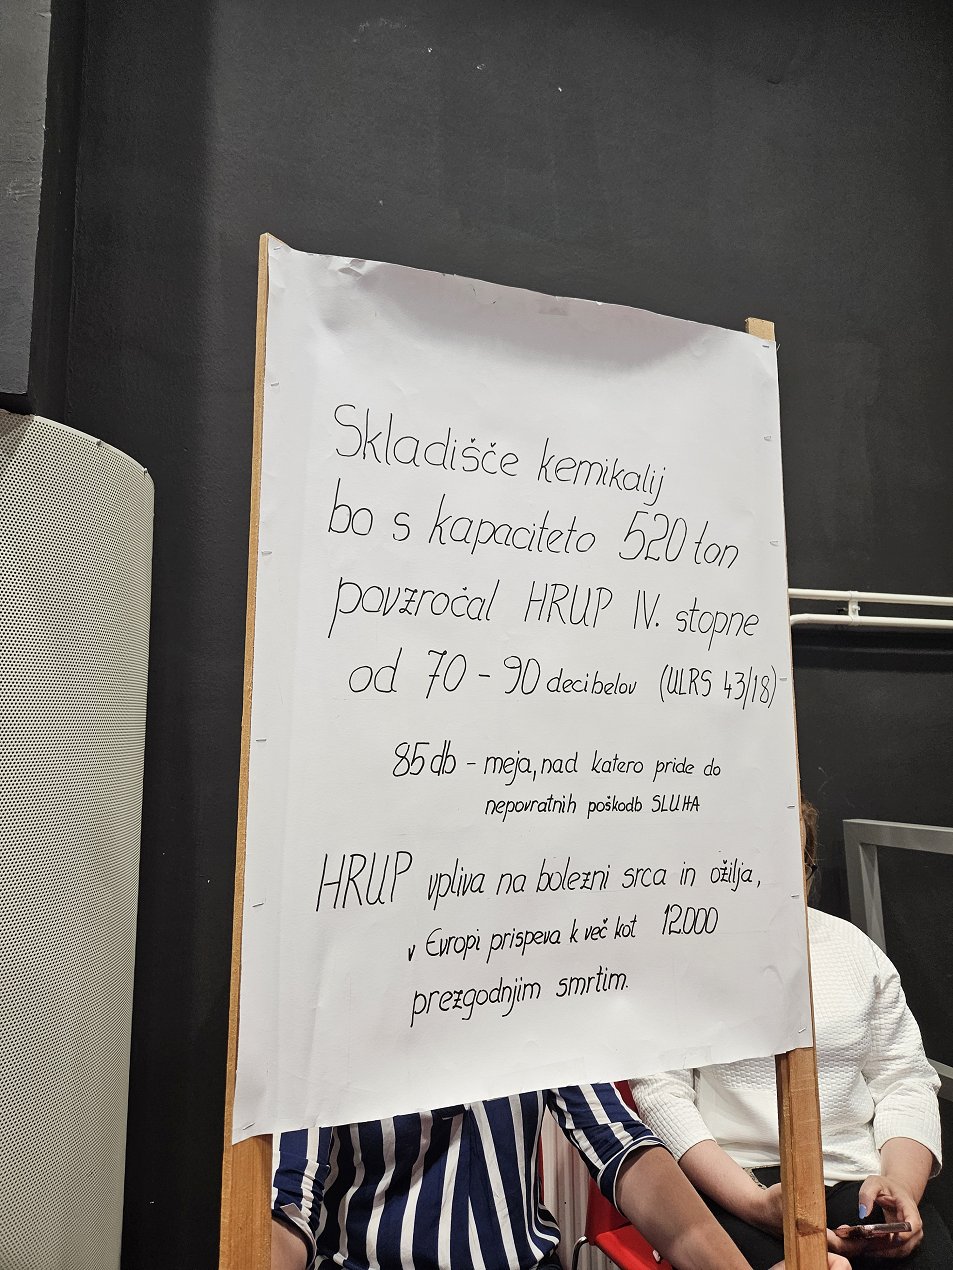 Skladišče kemikalij
bo s kapaciteto 520 ton
povzročal HRUP IV. stopne
od 70 - 90 decibelov (ULRS 43/18)
85 db - meja, nad katero pride do
nepovratnih poškodb SLUHA
HRUP vpliva na bolezni srca in ožilja,
v Evropi prispeva k več kot 12.000
prezgodnjim smrtim.